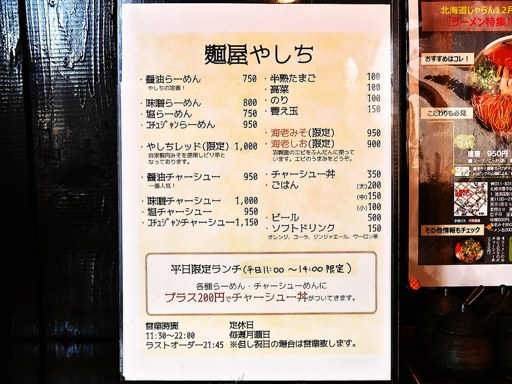 麺屋やしち
・醤油らーめん 750
やしちの定番！
・味噌らーめん 800
・塩らーめん 750
・コチュジャンらーめん 950
・やしちレッド(限定) 1,000
自家製肉みそを使用しピリ辛と
なっております。
・醤油チャーシュー 950
一番人気！
・味噌チャーシュー 1,000
・塩チャーシュー 950
・コチュジャンチャーシュー 1,150
・半熟たまご 100
・高菜 100
・のり 100
・替え玉 150
・海老みそ(限定) 950
・海老しお(限定) 900
羽幌産のエビをふんだんに使って
います。エビのうまみをどうぞ。
・チャーシュー丼 350
・ごはん (大)200
(中)150
(小)100
・ビール 500
・ソフトドリンク 150
オレンジ、コーラ、ジンジャエール、ウーロン茶
平日限定ランチ(平日11:00〜14:00限定)
各種らーめん・チャーシューめんに
プラス200円でチャーシュー丼がついてきます。
営業時間 定休日
11:30〜22:00 毎週月曜日
ラストオーダー21:45 ※但し祝日の場合は営業致します。
北海道じゃらん12月
ラーメン特集
おすすめはコレ！
こだわりも必見
950円
その他情報もチェック